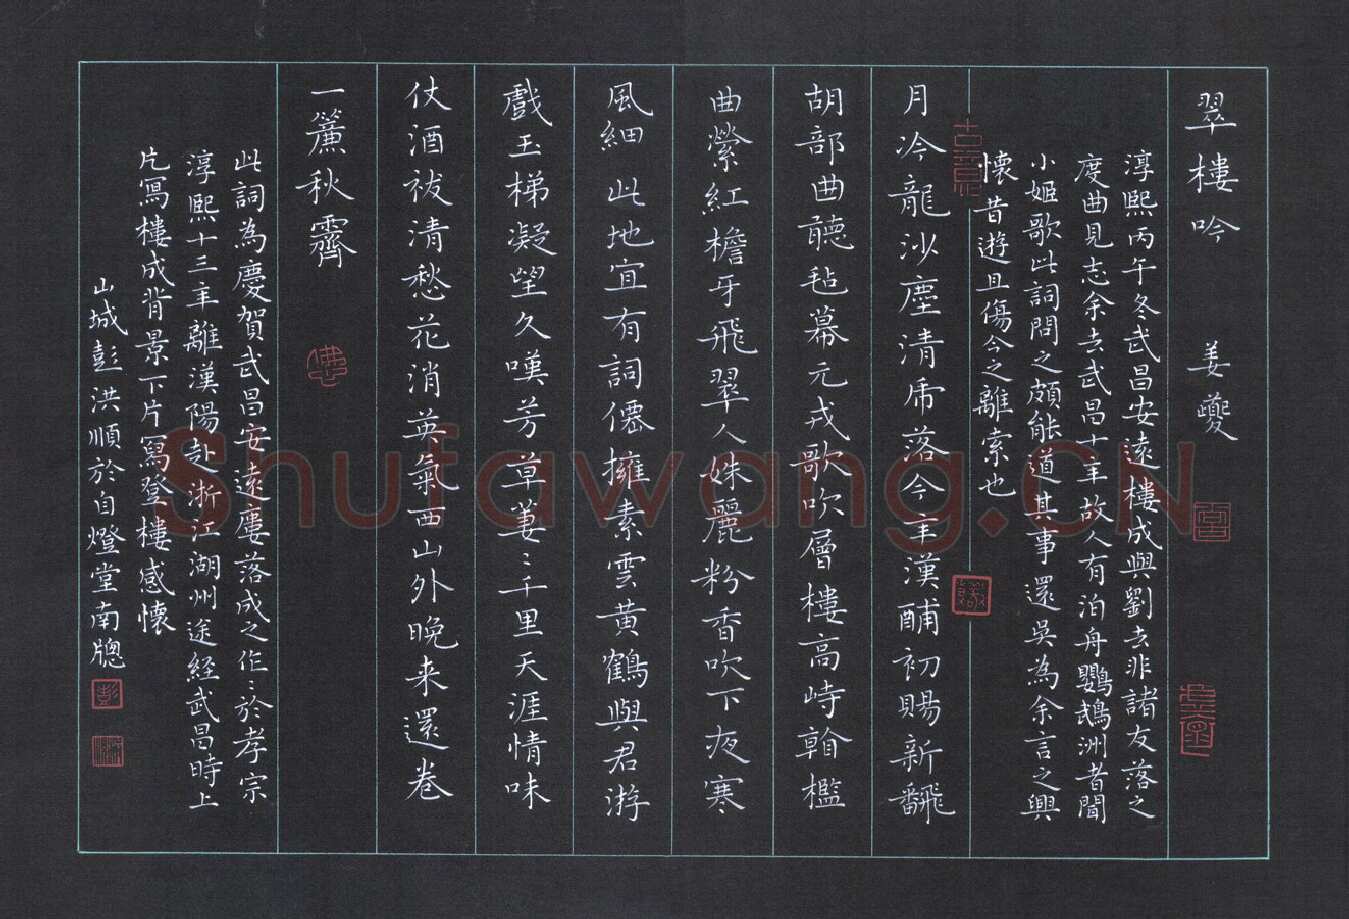 翠樓吟 姜夔
淳熙丙午冬武昌安遠樓成與劉去非諸友落之
度曲見志余去武昌十年故人有泊舟鸚鵡洲者聞
小姬歌此詞問之頗能道其事還吳為余言之興
懷昔遊且傷今之離索也
月冷龍沙塵清虎落今年漢酺初賜新翻
胡部曲聽氈幕元戎歌吹層樓高峙看檻
曲縈紅檐牙飛翠人姝麗粉香吹下夜寒
風細此地宜有詞僊擁素雲黃鶴與君游
戲玉梯凝望久嘆芳草萋〻千里天涯情味
仗酒祓清愁花消英氣西山外晚来還卷
一簾秋霽
此詞為慶賀武昌安遠樓落成之作〻於孝宗
淳熙十三年離漢陽赴浙江湖州途經武昌時上
片寫樓成背景下片寫登樓感懷
山城彭洪順於自燈堂南牕
Shufawang.CN